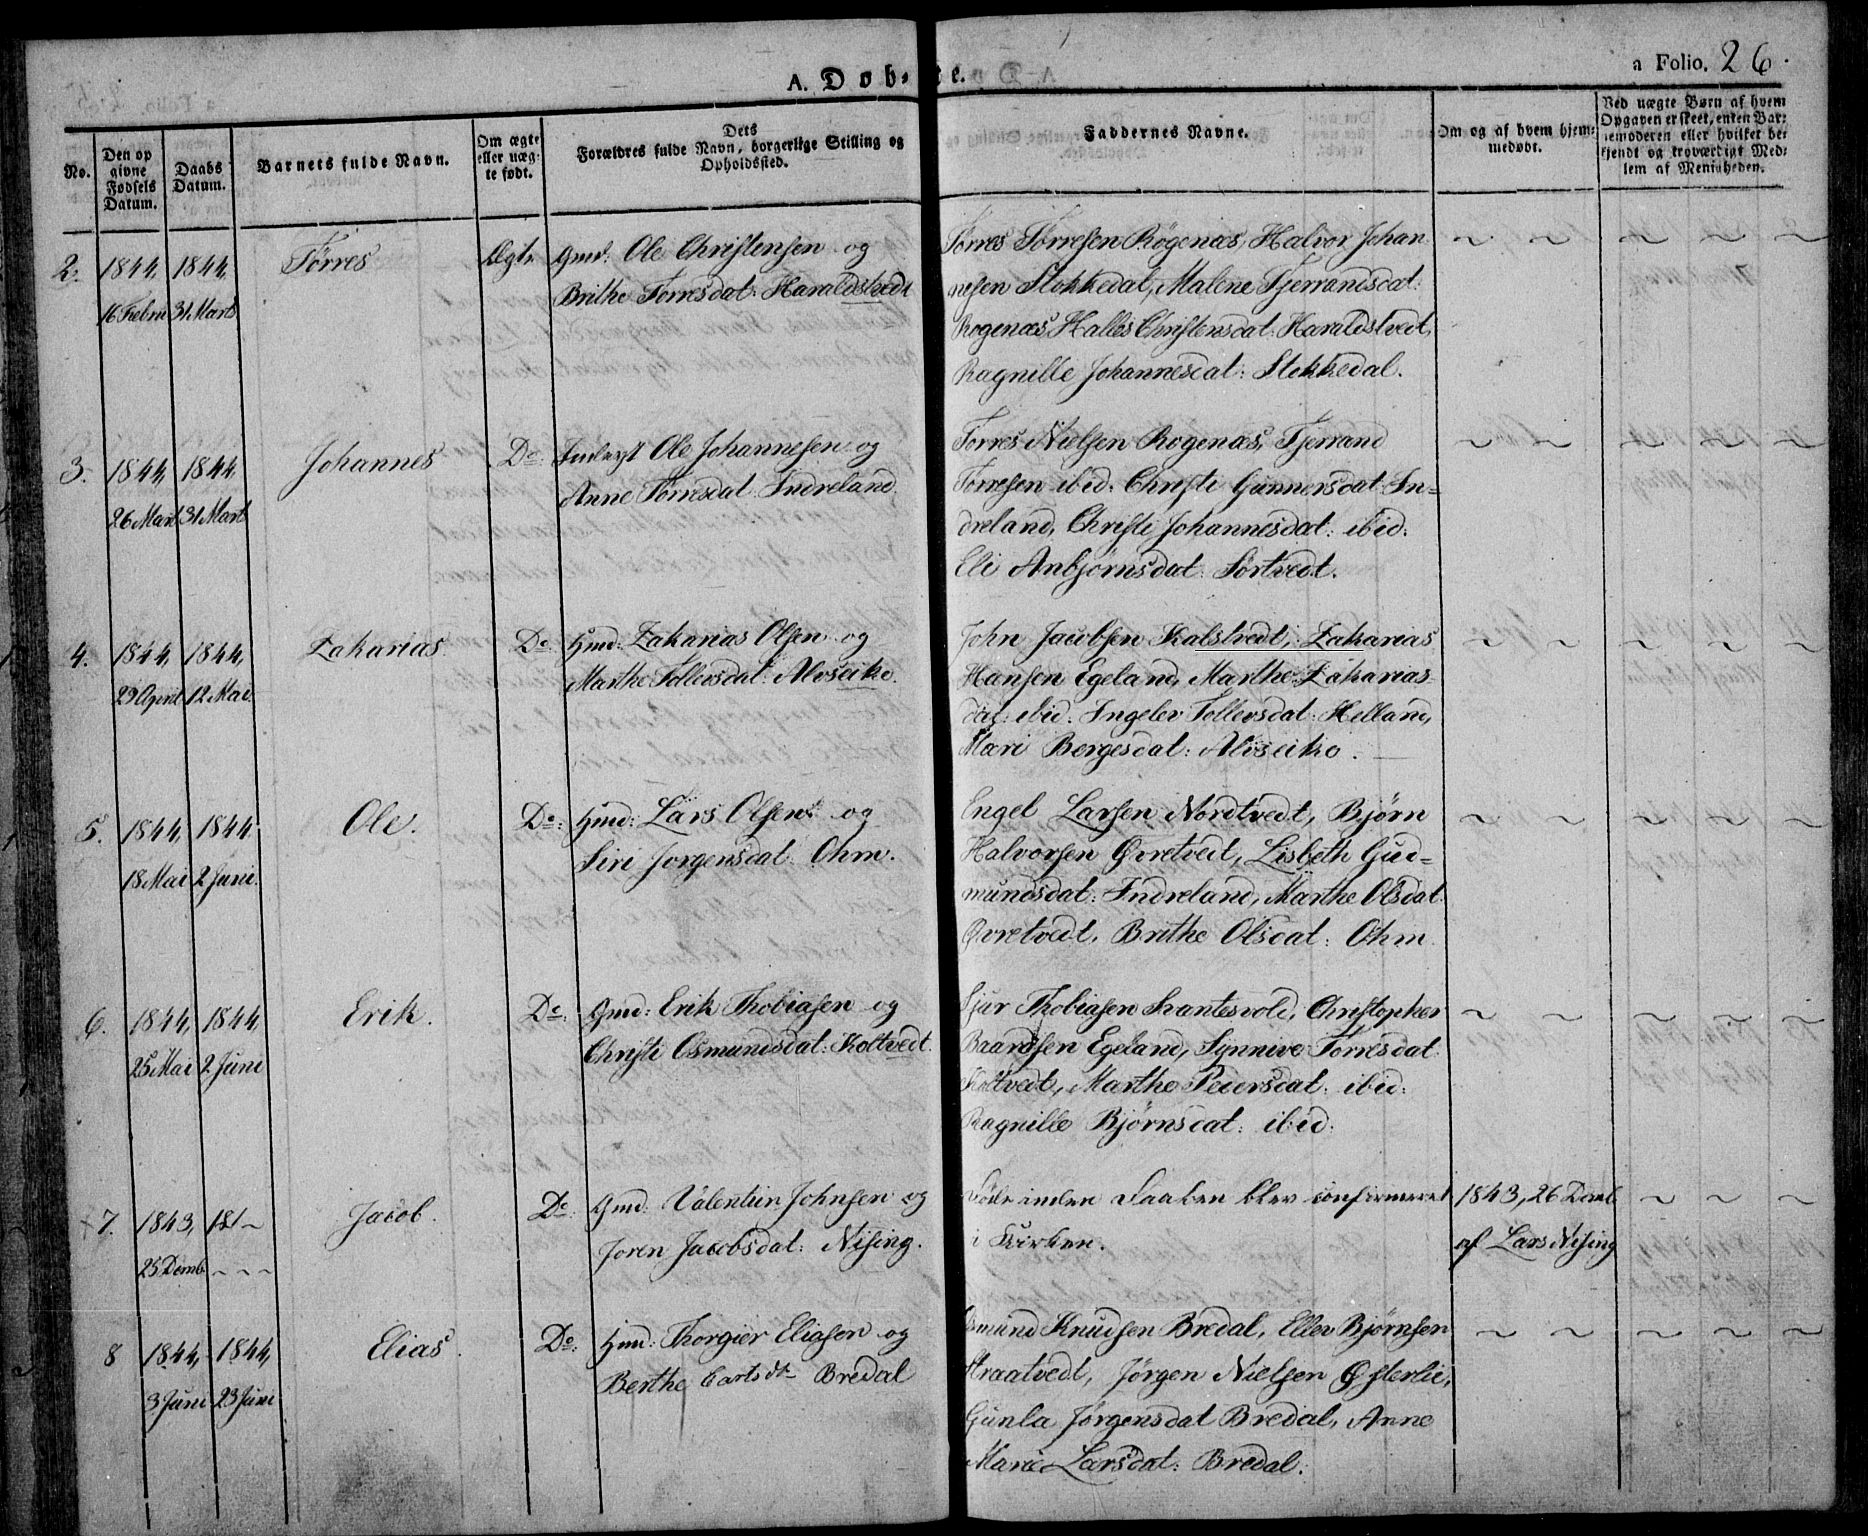 A. Døbte.
a Folio. 26.
No.
Den op
givne
Fødsels
Datum.
Daabs
Datum.
Barnets fulde Navn.
Om ægte
eller uæg-
te født.
Dets
Forældres fulde Navn, borgerlige Stilling og
Opholdssted.
Faddernes Navne.
Om og af hvem hjem-
medøbt.
Ved uægte Børn af hvem
Opgaven er skeet, enten Bar-
nemoderen eller hvilket be-
kjendt og troværdigt Med-
lem af Menigheden.
2. 1844, 1844, Tørres Ægte Gmd: Ole Christensen og
16 Febru 31 Marts Brithe Torresdat: Haraldstvedt
Tørres Tørresen Rögenæs, Halvor Johan
nesen Stokkedal, Malene Tjerrandsdat:
Rogenæs, Halles Christensdat: Haraldstvedt,
Ragnille Johannesdat: Stokkedal.
3. 1844, 1844, Johannes Do: Inderst Ole Johannesen og
26 Mart 31 Mart Anne Torresdat Indreland.
Torres Nielsen Rogenæs, Tjerrand
Torresen ibid: Christi Gunnersdat: In=
dreland, Christi Johannesdat: ibid:
Eli Anbjørnsdat: Sørtvedt.
4. 1844, 1844, Zakarias Do: Hmd: Zakarias Olsen og
29 April 12 Mai Marthe Tollevsdat: Alvseike.
John Jacobsen Kalstvedt, Zakarias
Hansen Egeland, Marthe Zakarias-
dat: ibid: Ingelev Tollevsdat: Helland,
Mari Bergesdat: Alvseike.
5. 1844, 1844 Ole. Do: Hmd: Lars Olsen og
18 Mai 2 Juni. Siri Jorgensdat: Ohm.
Engel Larsen Nordtvedt, Bjørn
Halvorsen Øvretvedt, Lisbeth Gud=
mundsdat: Indreland, Marthe Olsdat:
Øvretvedt, Brithe Olsdat: Ohm.
6. 1844, 1844, Erik. Do: Gmd: Erik Thobiasen og
25 Mai 2 Juni Christi Osmundsdat: Kottvedt.
Sjur Thobiasen Svantesvold, Christopher
Baardsen Egeland, Synnive Torresdat:
Kottvedt, Marthe Pedersdat: ibid:
Ragnille Bjørnsdat: ibid:
7. 1843, 181~ Jacob. Do: Gmd: Valentin Johnsen og
25 Decmb. Joren Jacobsdat: Nising.
Døde inden Daaben blev confirmeret
i Kirken.
1843, 26 Decmb.
af Lars Nising
8 1844, 1844, Elias. Do: Hmd: Thorgier Eliasen og
3 Juni 23 Juni Berthe Bredal
Osmund Knudsen Bredal, Ellev Bjørnsen
Straatvedt, Jørgen Nielsen Østerlie,
Gunla Jørgensdat Bredal, Anne
Marie Larsdat: Bredal.